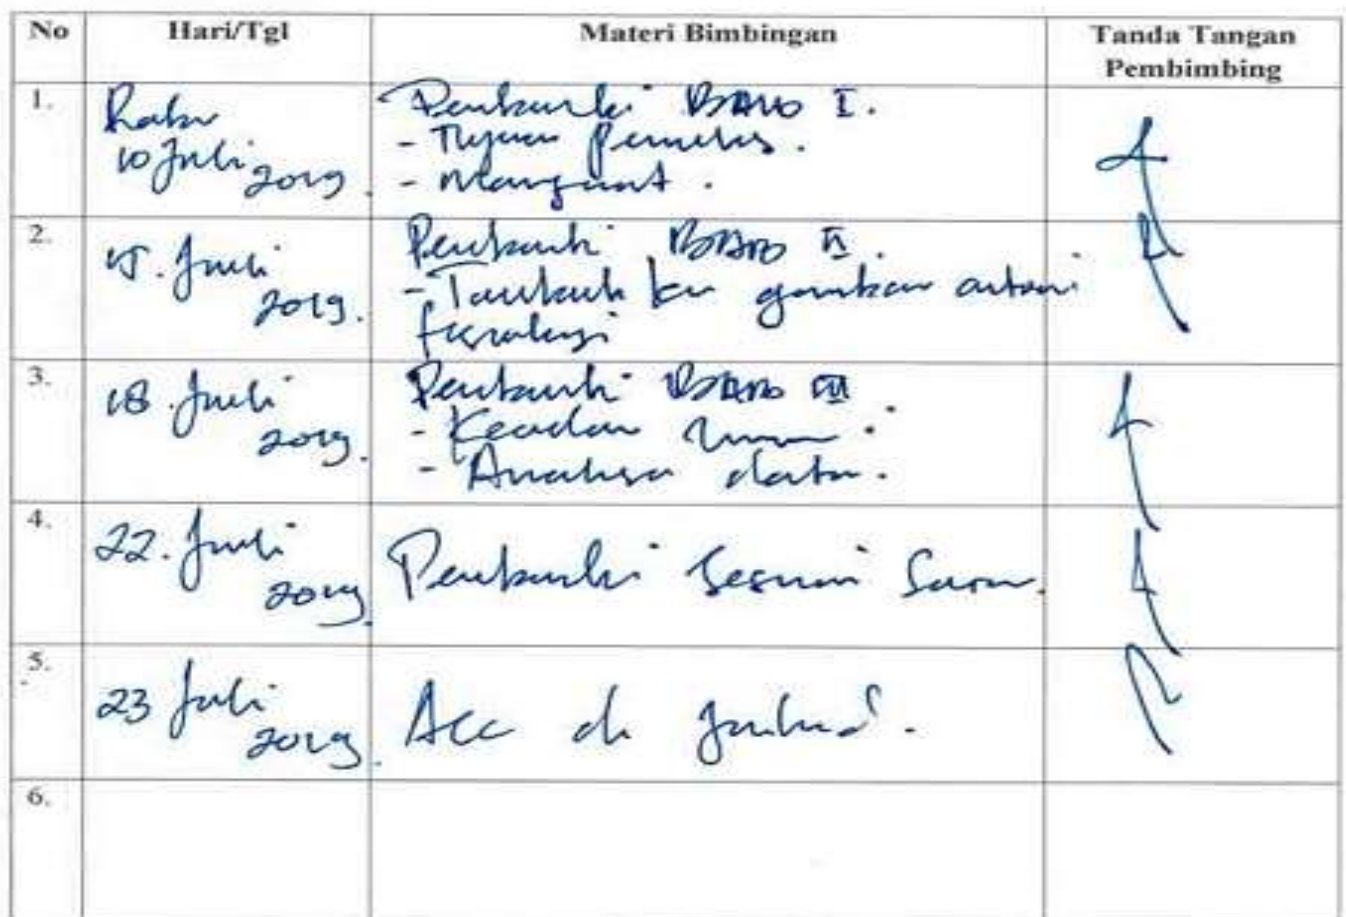 No Hari/Tgl Materi Bimbingan Tanda Tangan
Pembimbing
1. Rabu
10 Juli 2019.
Perbaiki BAB I.
- Tujuan Penulis.
- Manfaat.
2. 15. Juli
2019.
Perbaiki BAB II.
- gambar
3. 18. Juli
2019.
Perbaiki BAB III
- Keadaan Umum.
- Analisa data.
4. 22. Juli
2019.
Perbaiki Sesuai Saran.
5. 23 Juli
2019.
Acc di
6.